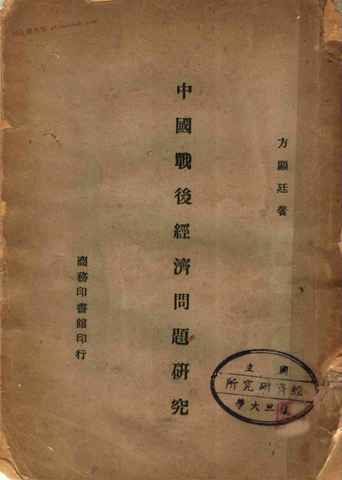 方顯廷著
中國戰後經濟問題研究
商務印書館印行
國立
復旦大學
經濟研究所